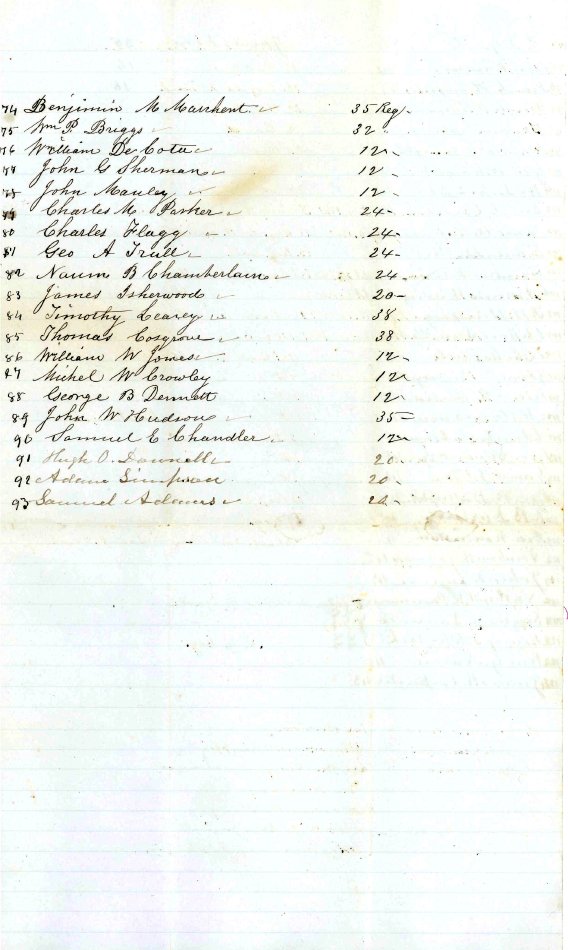 74 Benjimin M Marshent 35 Reg
75 Wm P. Briggs 32
76 William De Cota 12
77 John G Sherman 12
78 John Manley 12
79 Charles M. Parker 24
80 Charles Flagg 24
81 Geo A Trull 24
82 Naum B Chamberlain 24
83 James Isherwood 20
84 Timothy Learey 38
85 Thomas Cosgrove 38
86 William W Jones 12
87 Michel W Crowley 12
88 George B Dennett 12
89 John W Hudson 35
90 Samuel E Chandler 12
91 Hugh O. Donnell 20
92 Adam Simpson 20
93 Samuel Adams 20